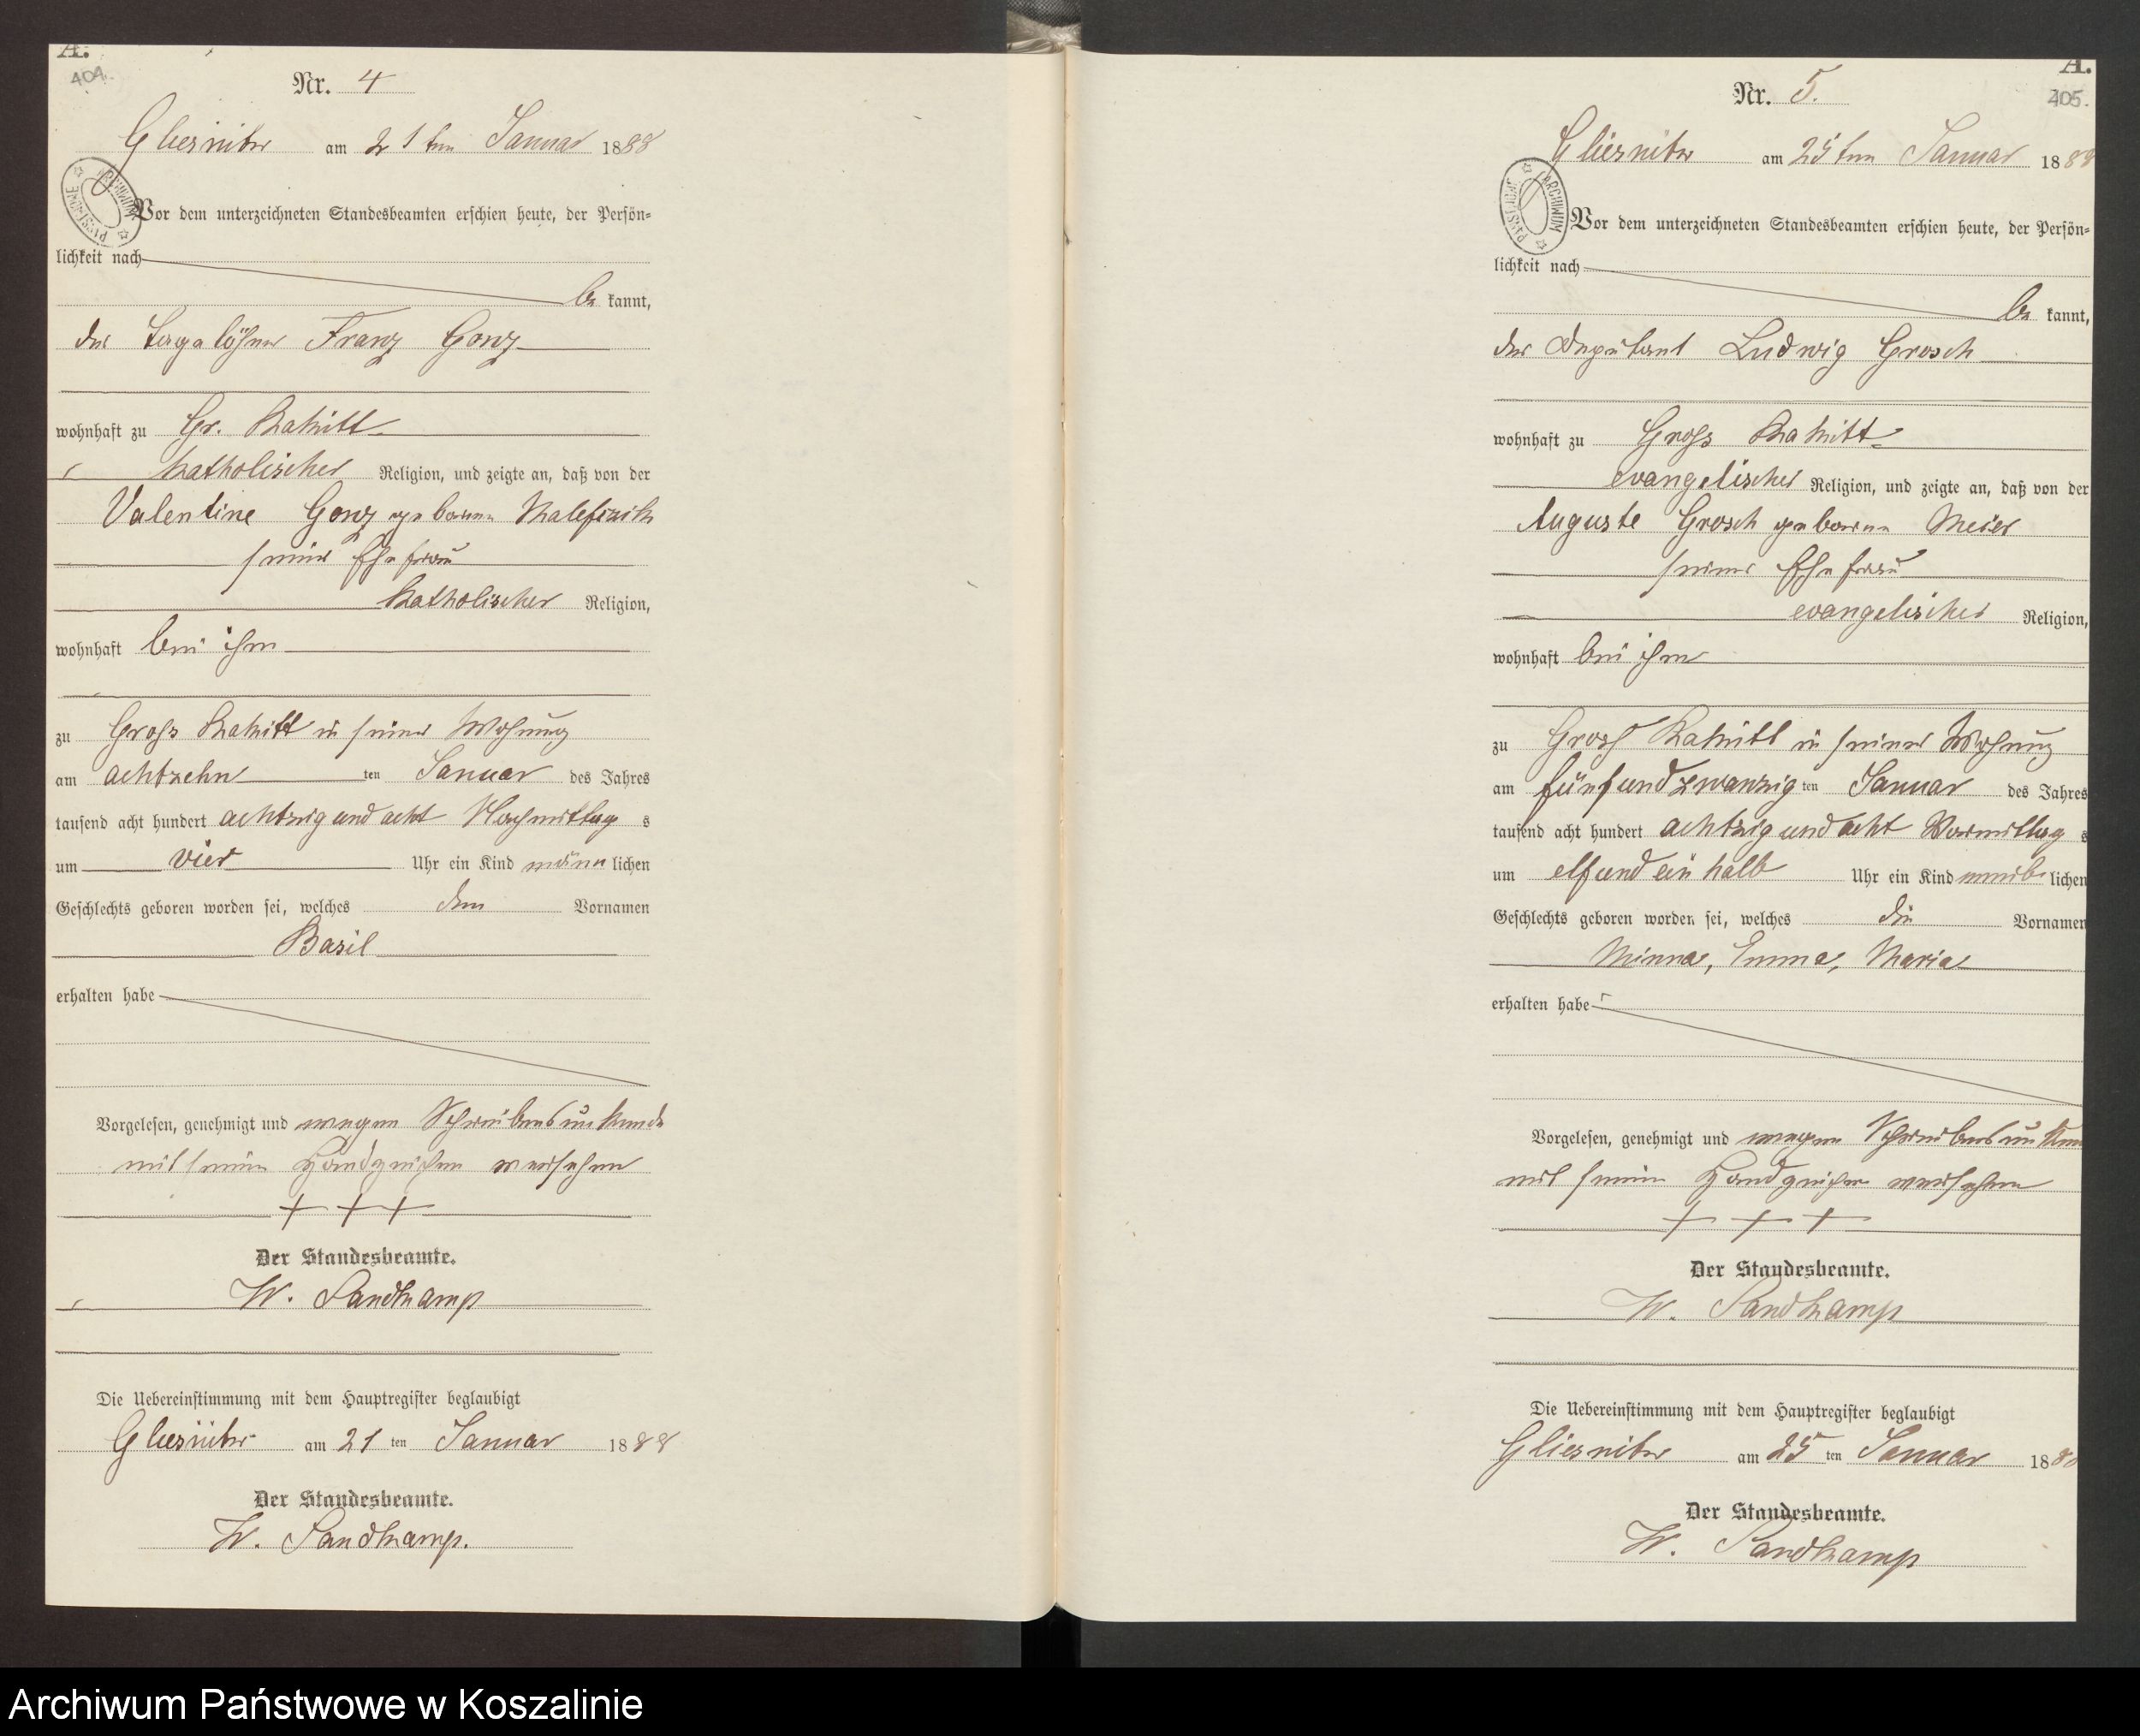 A.
404.
Nr. 4
Gliesnitz am 21ten Januar 1888
ARCHIWUM PAŃSTWOWE
Vor dem unterzeichneten Standesbeamten erschien heute, der Persön=
lichkeit nach
be kannt,
der Tagelöhner Franz Gonz
wohnhaft zu Gr. Rakitt
katholischer Religion, und zeigte an, daß von der
Valentine Gonz geborene
seiner Ehefrau
katholischer Religion,
wohnhaft bei ihm
zu Gross Rakitt in seiner Wohnung
am achtzehn ten Januar des Jahres
tausend acht hundert achtzig und acht Nachmittag s
um vier Uhr ein Kind männ lichen
Geschlechts geboren worden sei, welches den Vornamen
Basil
erhalten habe
Vorgelesen, genehmigt und wegen Schreibensunkunde
mit seinem Handzeichen versehen
+ + +
Der Standesbeamte.
W. Sandkamp
Die Uebereinstimmung mit dem Hauptregister beglaubigt
Gliesnitz am 21 ten Januar 1888
Der Standesbeamte.
W. Sandkamp.
A.
405.
Nr. 5.
Gliesnitz am 25ten Januar 1888
ARCHIWUM PAŃSTWOWE
Vor dem unterzeichneten Standesbeamten erschien heute, der Persön=
lichkeit nach
be kannt,
der Deputant Ludwig Grosch
wohnhaft zu Gross Rakitt
evangelischer Religion, und zeigte an, daß von der
Auguste Grosch geborene Meier
seiner Ehefrau
evangelischer Religion,
wohnhaft bei ihm
zu Gross Rakitt in seiner Wohnung
am fünfundzwanzig ten Januar des Jahres
tausend acht hundert achtzig und acht Vormittag s
um elf und ein halb Uhr ein Kind weib lichen
Geschlechts geboren worden sei, welches die Vornamen
Minna, Emma, Maria
erhalten habe
Vorgelesen, genehmigt und wegen Schreibensunkun
mit seinem Handzeichen versehen
+ + +
Der Standesbeamte.
W. Sandkamp
Die Uebereinstimmung mit dem Hauptregister beglaubigt
Gliesnitz am 25 ten Januar 188
Der Standesbeamte.
W. Sandkamp
Archiwum Państwowe w Koszalinie